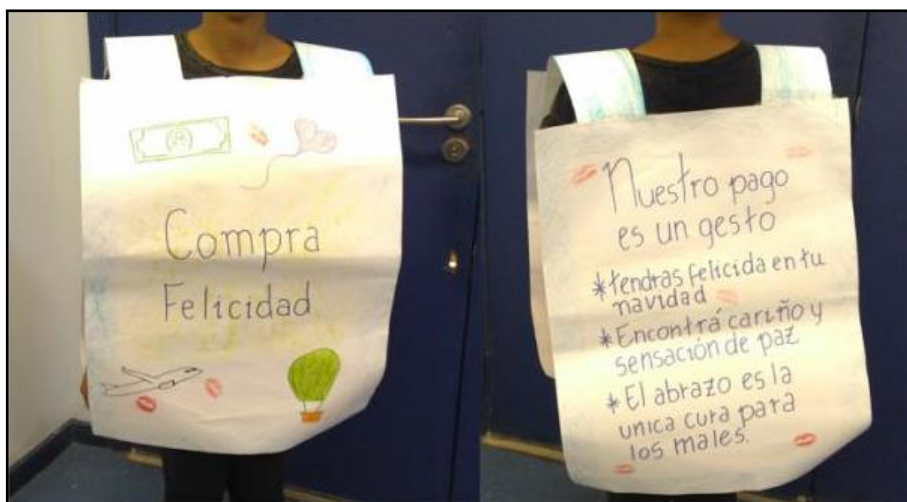 Compra
Felicidad
Nuestro pago
es un gesto
*tendras felicida en tu
navidad
*Encontrá cariño y
sensación de paz
*El abrazo es la
unica cura para
los males.